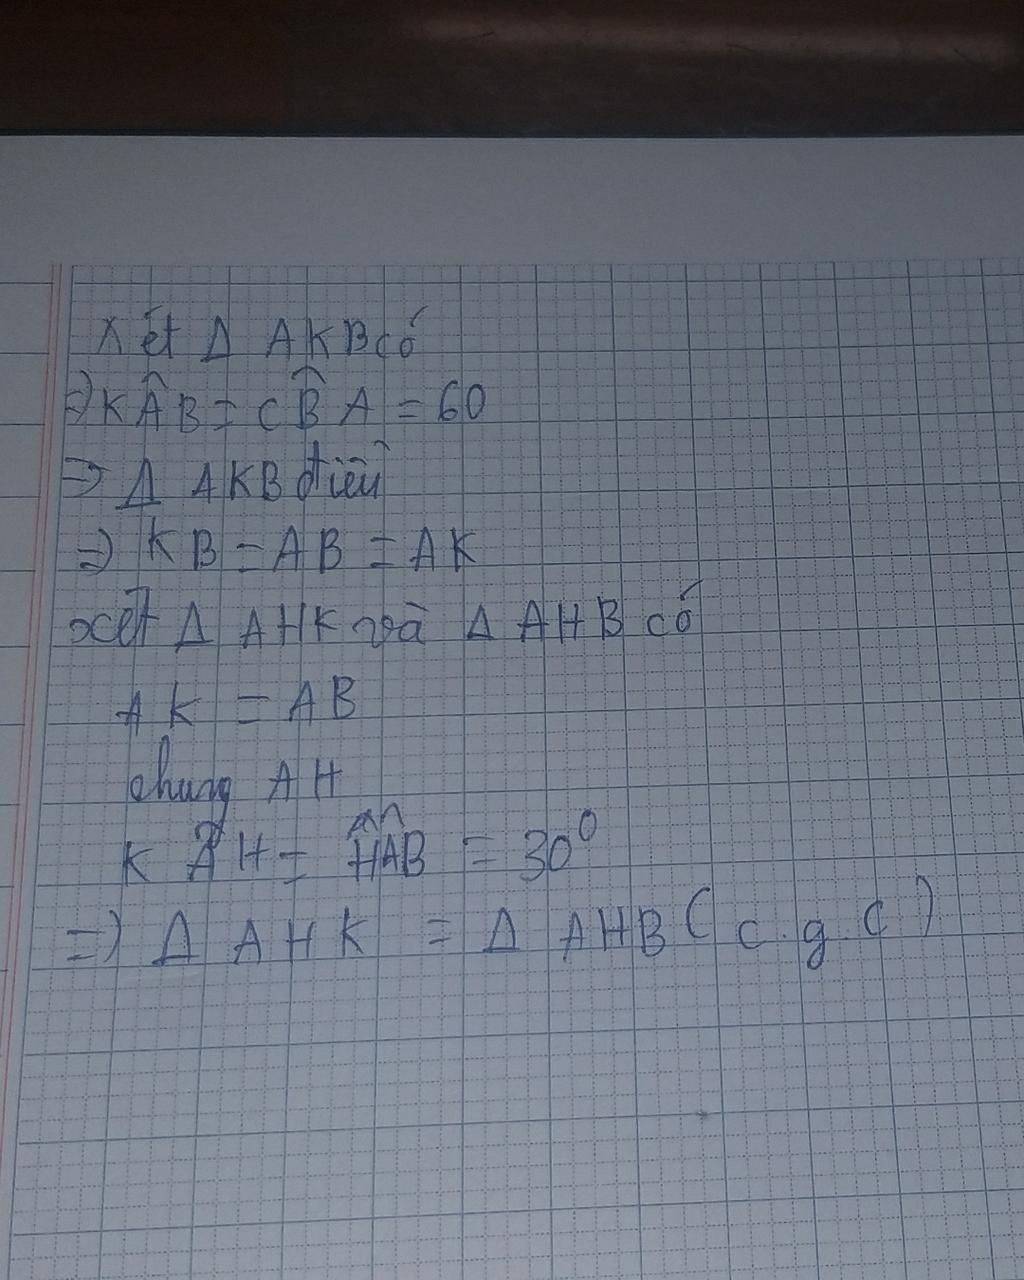 Xét Δ AKB có
=> KÂB = CB̂A = 60
=> Δ AKB đều
=> KB = AB = AK
xét Δ AHK và Δ AHB có
AK = AB
chung AH
KÂH = HÂB = 30⁰
=> Δ AHK = Δ AHB (c.g.c)